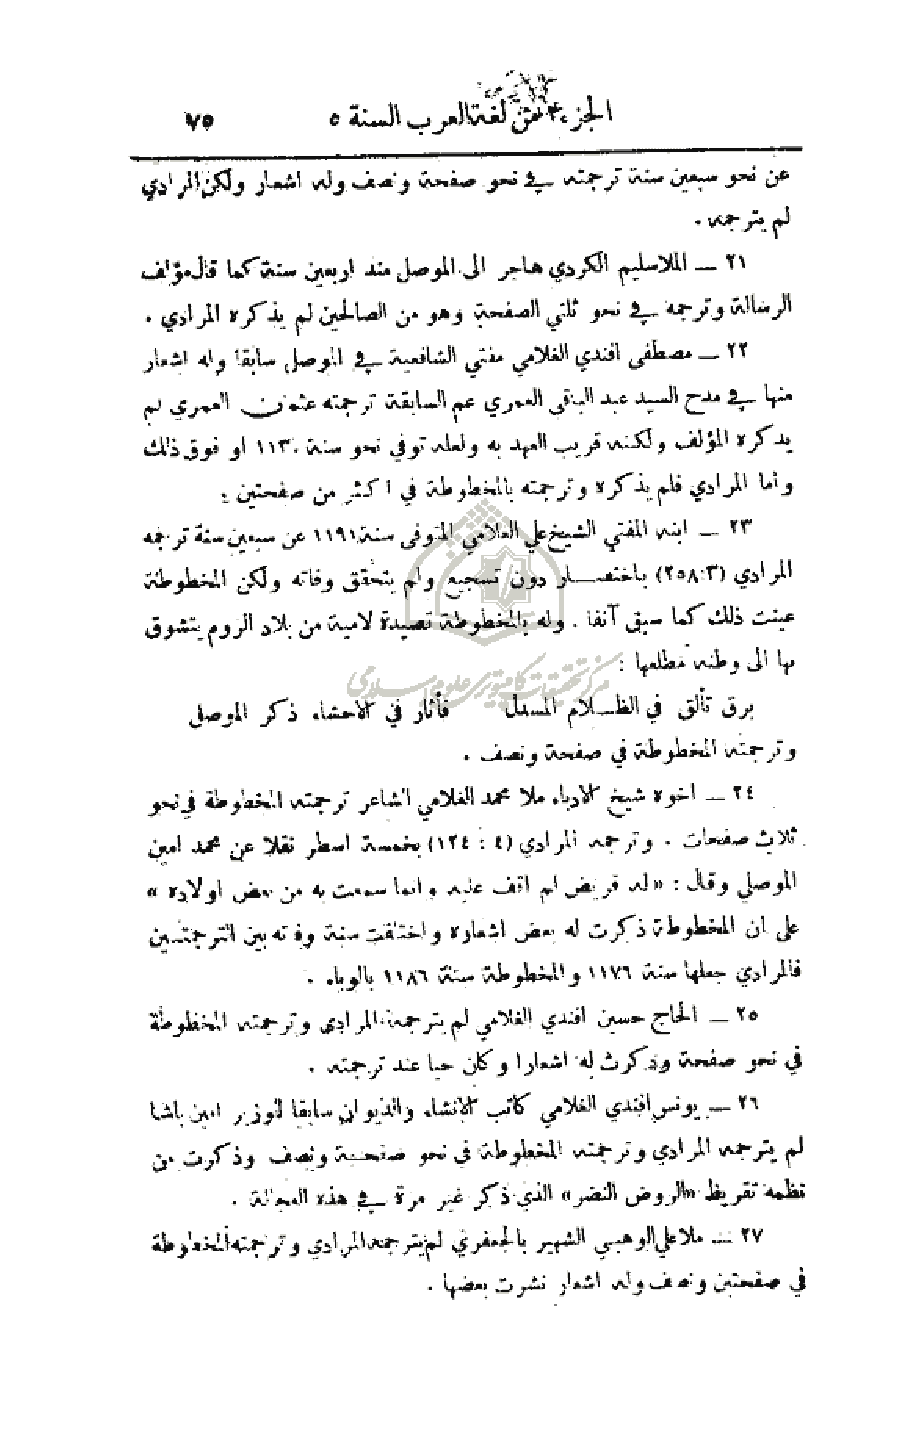 الجزء ٢ من لغة العرب السنة ٥ ٧٥
عن نحو سبعين سنة ترجمته في نحو صفحة ونصف وله اشعار ولكن المرادي
لم يترجمه .
٢١ — الملا سليم الكردي هاجر الى الموصل منذ اربعين سنة كما قال مؤلف
الرسالة وترجمه في نحو ثلثي الصفحة وهو من الصالحين لم يذكره المرادي .
٢٢ — مصطفى افندي الغلامي مفتي الشافعية في الموصل سابقا وله اشعار
منها في مدح السيد عبد الباقي العمري عم السابقة ترجمته عثمان العمري لم
يذكره المؤلف ولكنه قريب العهد به ولعله توفي نحو سنة ١١٣٠ او فوق ذلك
واما المرادي فلم يذكره وترجمته بالمخطوطة في اكثر من صفحتين .
٢٣ — ابنه المفتي الشيخ علي الغلامي المتوفى سنة ١١٩١ عن سبعين سنة ترجمه
المرادي (٣:٢٥٨) باختصار دون تسجيع ولم يتحقق وفاته ولكن المخطوطة
عينت ذلك كما سبق آنفا . وله بالمخطوطة قصيدة لامية من بلاد الروم يتشوق
بها الى وطنه مطلعها :
برق تألق في الظلام المسبل فأثار في الاحشاء ذكر الموصل
وترجمته المخطوطة في صفحة ونصف .
٢٤ — اخوه شيخ الادباء ملا محمد الغلامي الشاعر ترجمته المخطوطة في نحو
ثلاث صفحات . وترجمه المرادي (٤ : ١٢٤) بخمسة اسطر نقلا عن محمد امين
الموصلي وقال : «له قريض لم اقف عليه وانما سمعت به من بعض اولاده »
على ان المخطوطة ذكرت له بعض اشعاره واختلفت سنة وفاته بين الترجمتين
فالمرادي جعلها سنة ١١٧٦ والمخطوطة سنة ١١٨٦ بالوباء .
٢٥ — الحاج حسين افندي الغلامي لم يترجمه المرادي وترجمته المخطوطة
في نحو صفحة وذكرت له اشعارا وكان حيا عند ترجمته .
٢٦ — يونس افندي الغلامي كاتب الانشاء والديوان سابقا للوزير امين باشا
لم يترجمه المرادي وترجمته المخطوطة في نحو صفحة ونصف وذكرت من
نظمه تقريظ «الروض النضر» الذي ذكر غير مرة في هذه المجالة .
٢٧ — ملا علي الوهبي الشهير بالجعفري لم يترجمه المرادي وترجمته المخطوطة
في صفحتين ونصف وله اشعار نشرت بعضها .
مرکز تحقیقات کامپیوتری علوم اسلامی